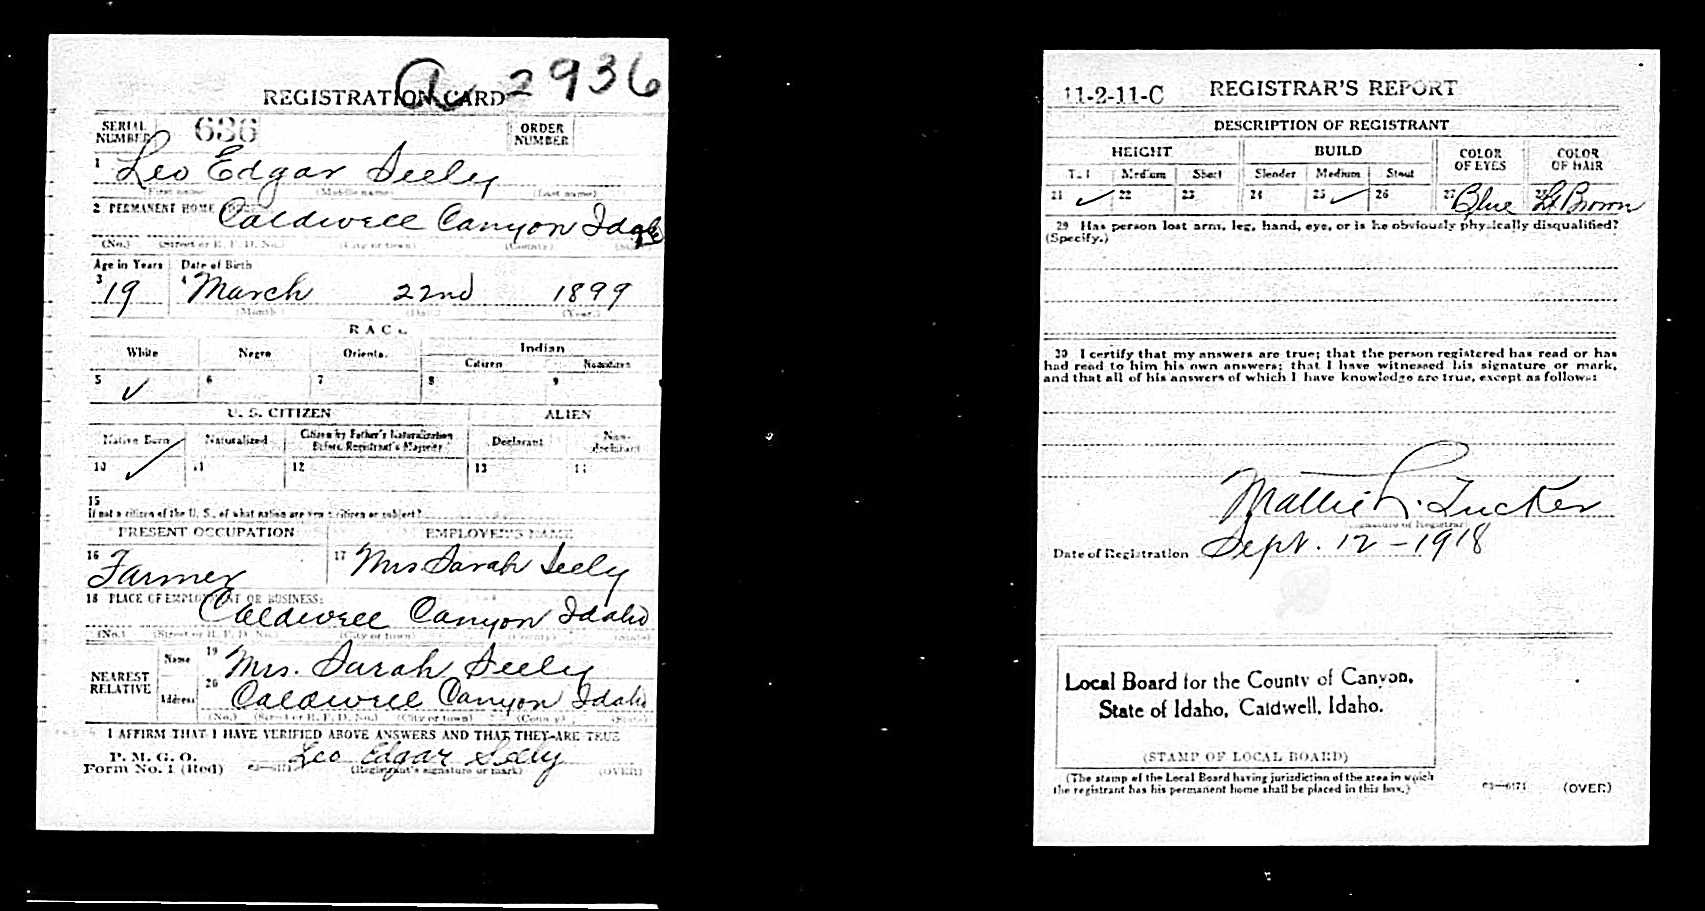 A 2936
REGISTRATION CARD
SERIAL NUMBER 636 ORDER NUMBER
1 Leo Edgar Seely
(First name) (Middle name) (Last name)
2 PERMANENT HOME
Caldwell Canyon Idaho
(No.) (Street or R. F. D. No.) (City or town) (County) (State)
Age in Years Date of Birth
3 19 4 March 22nd 1899
(Month) (Day) (Year)
RACE
White Negro Oriental Indian
Citizen Noncitizen
5 ✓ 6 7 8 9
U. S. CITIZEN ALIEN
Native Born Naturalized Citizen by Father's Naturalization Before Registrant's Majority Declarant Non-declarant
10 ✓ 11 12 13 14
15
If not a citizen of the U. S., of what nation are you a citizen or subject?
PRESENT OCCUPATION EMPLOYER'S NAME
16 Farmer 17 Mrs Sarah Seely
18 PLACE OF EMPLOYMENT OR BUSINESS:
Caldwell Canyon Idaho
(No.) (Street or R. F. D. No.) (City or town) (County) (State)
NEAREST RELATIVE Name 19 Mrs. Sarah Seely
Address 20 Caldwell Canyon Idaho
(No.) (Street or R. F. D. No.) (City or town) (County) (State)
I AFFIRM THAT I HAVE VERIFIED ABOVE ANSWERS AND THAT THEY ARE TRUE
P. M. G. O.
Form No. 1 (Red) Leo Edgar Seely
(Registrant's signature or mark) (OVER)
11-2-11-C REGISTRAR'S REPORT
DESCRIPTION OF REGISTRANT
HEIGHT BUILD COLOR OF EYES COLOR OF HAIR
Tall Medium Short Slender Medium Stout
21 ✓ 22 23 24 25 ✓ 26 27 Blue 28 Lt Brown
29 Has person lost arm, leg, hand, eye, or is he obviously physically disqualified?
(Specify.)
30 I certify that my answers are true; that the person registered has read or has
had read to him his own answers; that I have witnessed his signature or mark,
and that all of his answers of which I have knowledge are true, except as follows:
Mattie L. Tucker
(Signature of Registrar)
Date of Registration Sept. 12-1918
Local Board for the County of Canyon,
State of Idaho, Caldwell, Idaho.
(STAMP OF LOCAL BOARD)
(The stamp of the Local Board having jurisdiction of the area in which
the registrant has his permanent home shall be placed in this box.)
03-6171 (OVER)